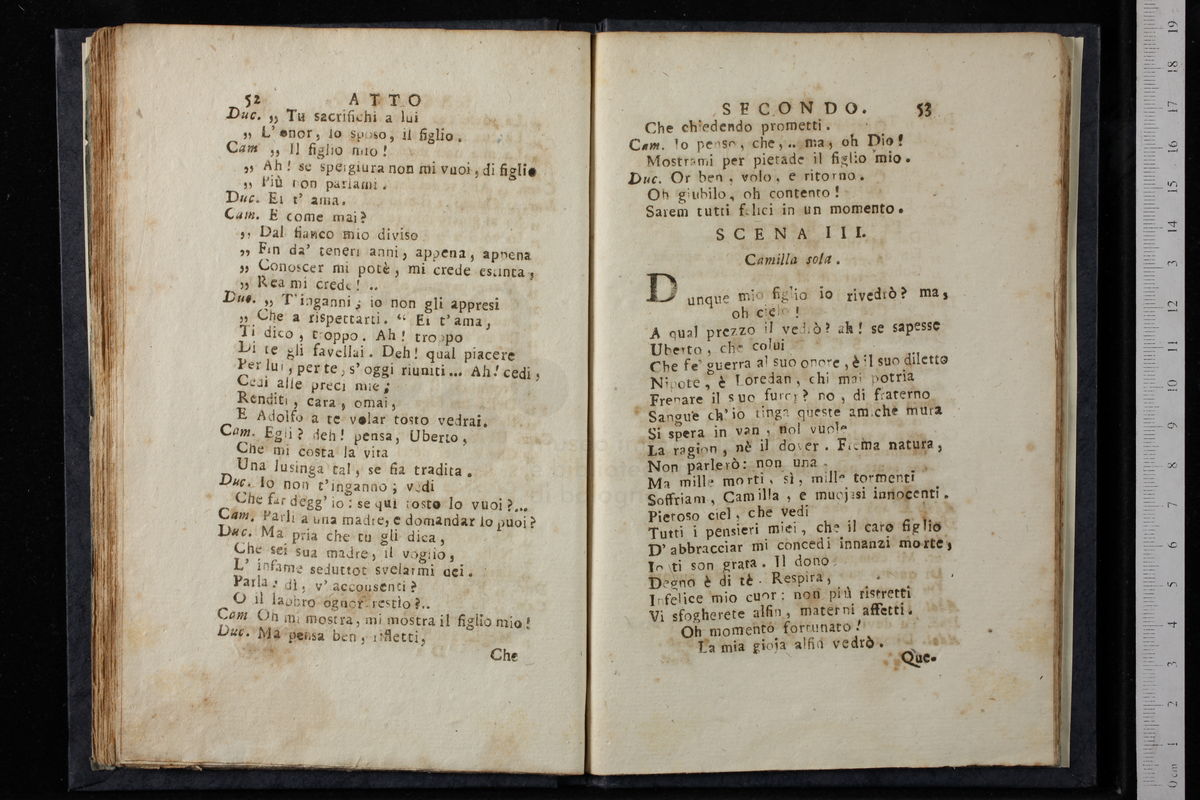 52 ATTO
Duc. „ Tu sacrifichi a lui
„ L'onor, lo sposo, il figlio.
Cam „ Il figlio mio!
„ Ah! se spergiura non mi vuoi, di figlio
„ Più non parlami.
Duc. Ei t'ama.
Cam. E come mai?
„ Dal fianco mio diviso
„ Fin da' teneri anni, appena, appena
„ Conoscer mi potè, mi crede estinta,
„ Rea mi crede! ..
Duc. „ T'inganni; io non gli appresi
„ Che a rispettarti. “ Ei t'ama,
Ti dico, troppo. Ah! troppo
Di te gli favellai. Deh! qual piacere
Per lui, per te, s'oggi riuniti... Ah! cedi,
Cedi alle preci mie;
Renditi, cara, omai,
E Adolfo a te volar tosto vedrai.
Cam. Egli? deh! pensa, Uberto,
Che mi costa la vita
Una lusinga tal, se fia tradita.
Duc. Io non t'inganno; vedi
Che far degg'io: se qui tosto lo vuoi?...
Cam. Parli a una madre, e domandar lo puoi?
Duc. Ma pria che tu gli dica,
Che sei sua madre, il voglio,
L'infame seduttot svelarmi dei.
Parla: dì, v'acconsenti?
O il labbro ognor restìo?..
Cam Oh mi mostra, mi mostra il figlio mio!
Duc. Ma pensa ben, rifletti,
Che
SECONDO. 53
Che chiedendo prometti.
Cam. Io penso, che,.. ma, oh Dio!
Mostrami per pietade il figlio mio.
Duc. Or ben, volo, e ritorno.
Oh giubilo, oh contento!
Sarem tutti felici in un momento.
SCENA III.
Camilla sola.
Dunque mio figlio io rivedrò? ma,
oh cielo!
A qual prezzo il vedrò? ah! se sapesse
Uberto, che colui
Che fe' guerra al suo onore, è il suo diletto
Nipote, è Loredan, chi mai potria
Frenare il suo furor? no, di fraterno
Sangue ch'io tinga queste amiche mura
Si spera in van, nol vuole
La ragion, nè il dover. Frema natura,
Non parlerò: non una
Ma mille morti, sì, mille tormenti
Soffriam, Camilla, e muojasi innocenti.
Pietoso ciel, che vedi
Tutti i pensieri miei, che il caro figlio
D'abbracciar mi concedi innanzi morte,
Io ti son grata. Il dono
Degno è di tè. Respira,
Infelice mio cuor: non più ristretti
Vi sfogherete alfin, materni affetti.
Oh momento fortunato!
La mia gioja alfin vedrò.
Que-